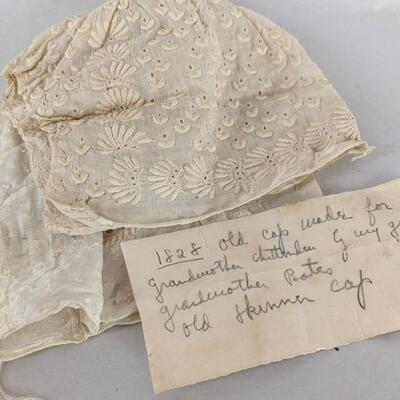 1828 old cap made for
grandmother chittenden by my g
grandmother Bates
old Skinner cap